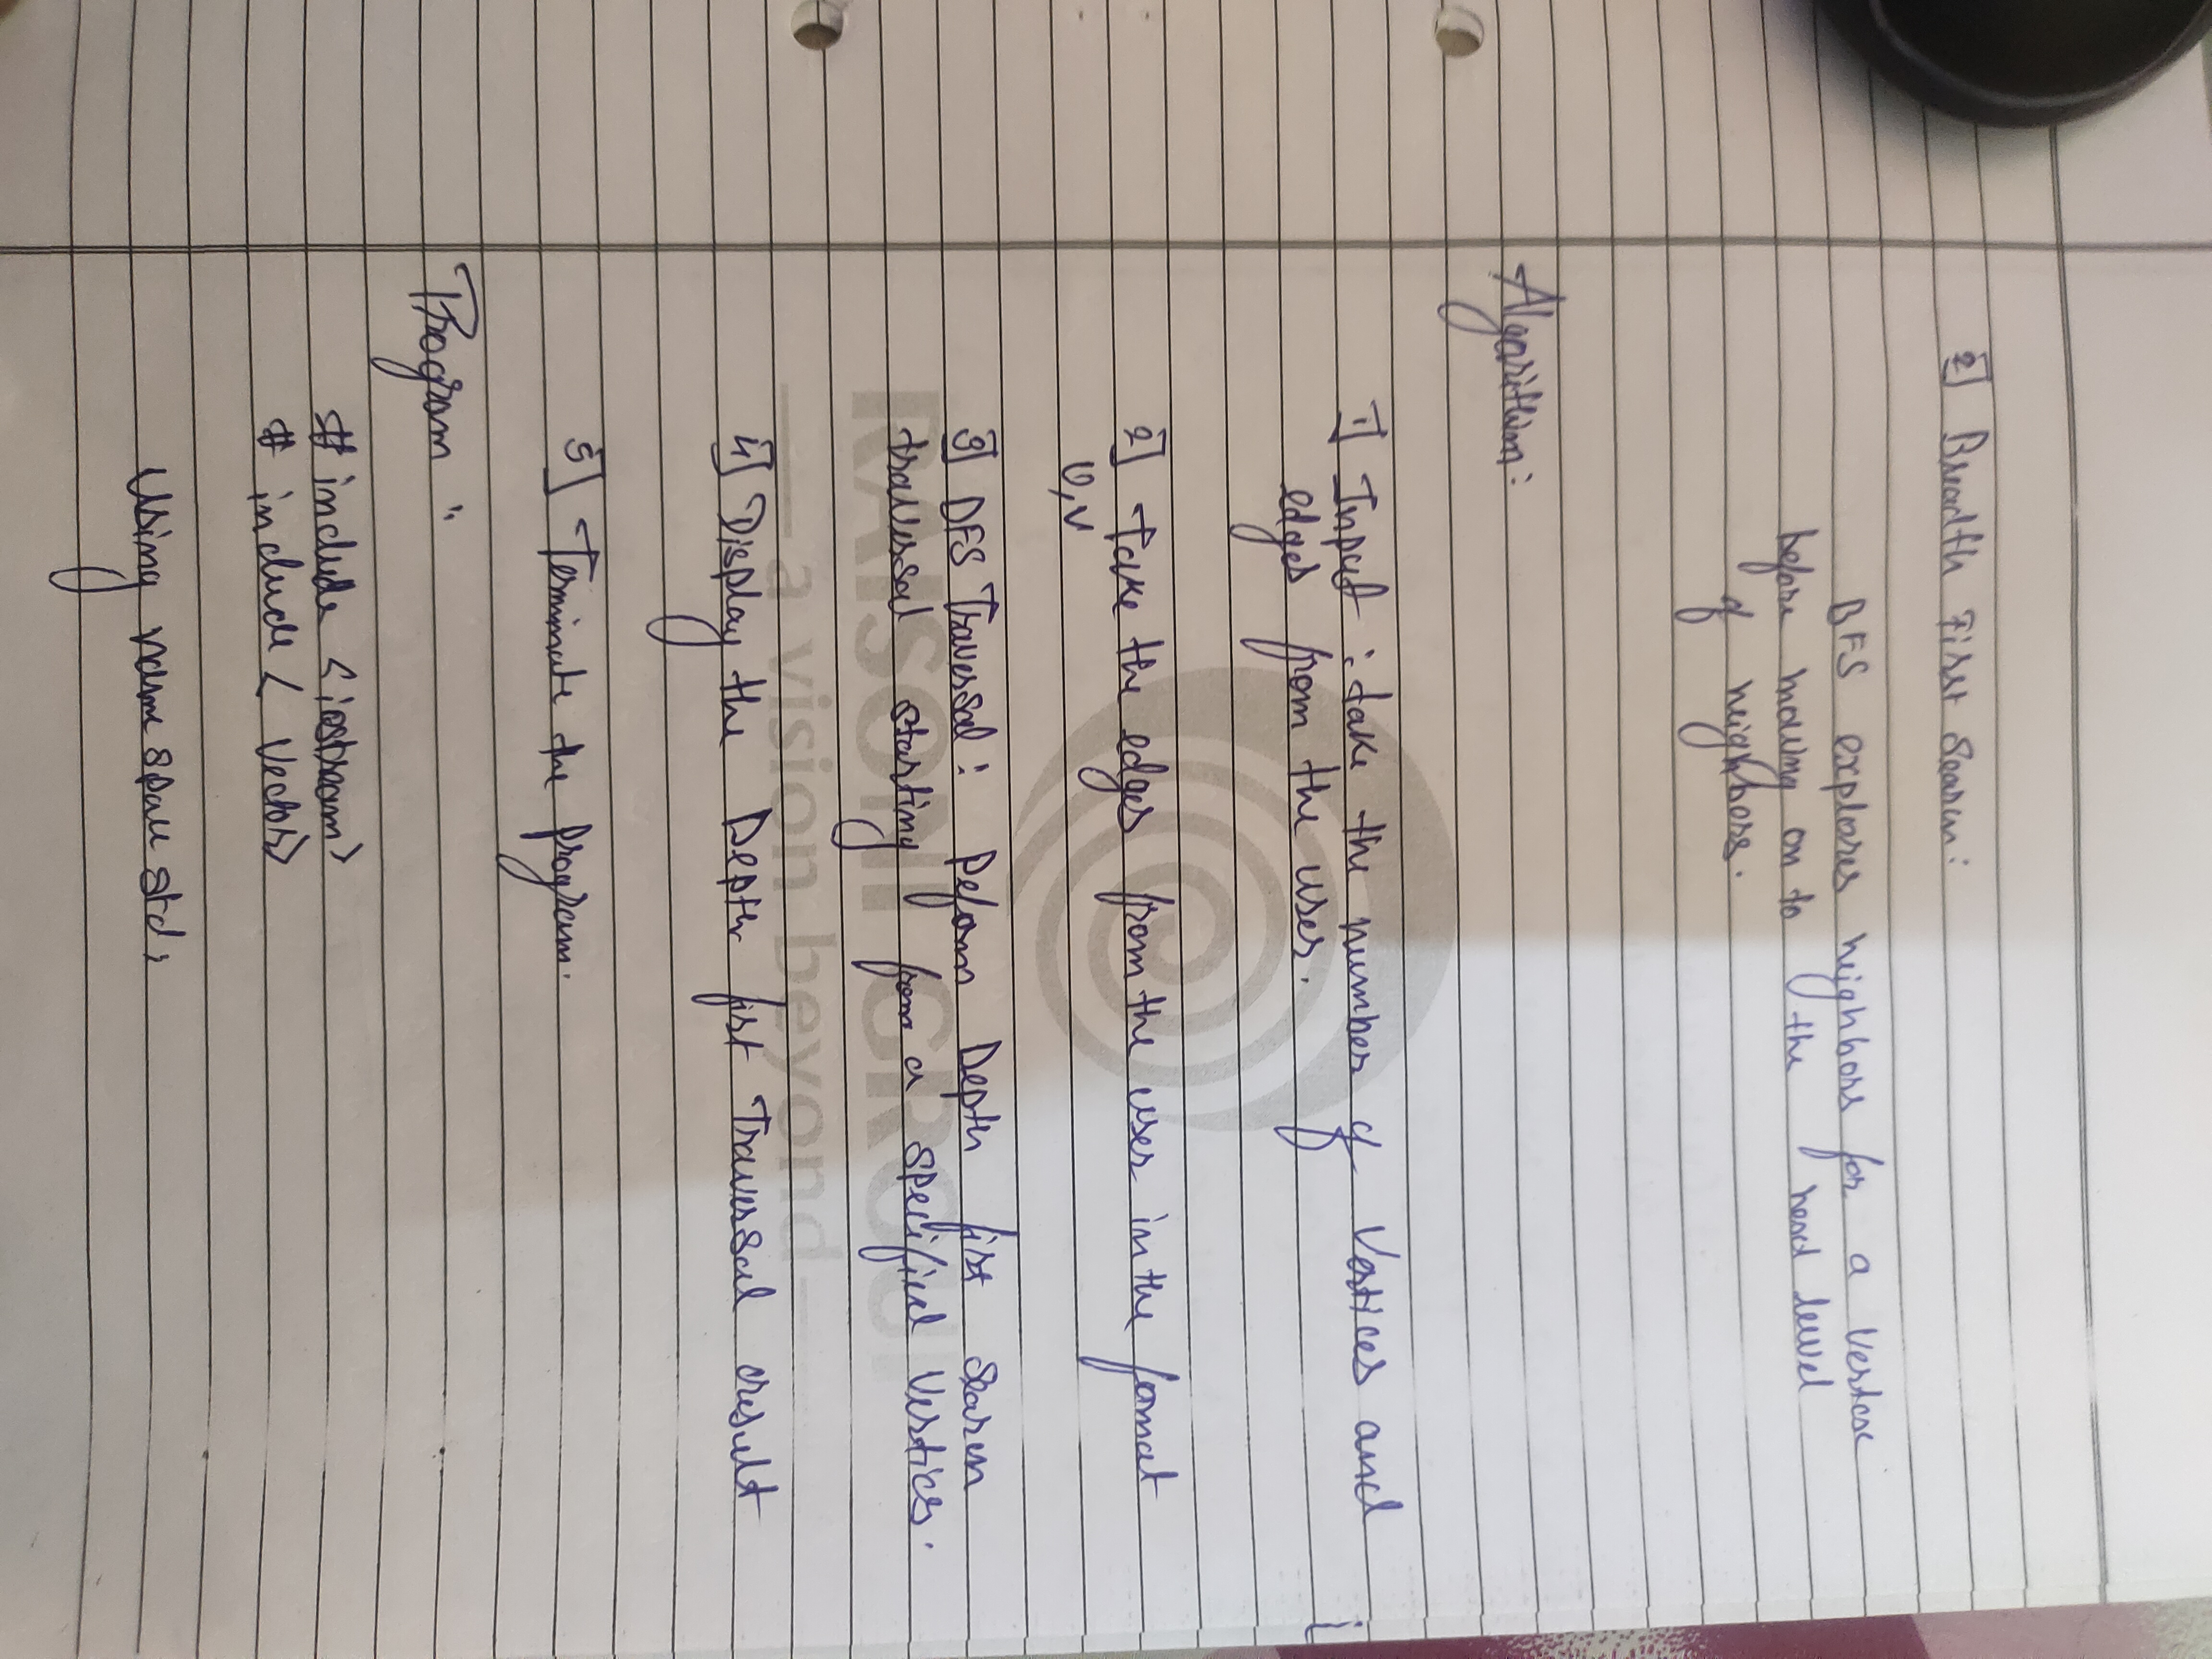 2] Breadth First Search:
BFS explores neighbors for a vertex
before moving on to the next level
of neighbors.
Algorithm:
1] Input : take the number of vertices and
edges from the user.
2] Take the edges from the user in the format
U,V
3] DFS Traversal : Peform Depth fist Search
traversal starting from a specified vertices.
4] Display the Depth fist Traversal result
5] Terminate the program.
Program :
# include <iostream>
# include < vector>
Using name space std;
RAISONI GROUP
a vision beyond